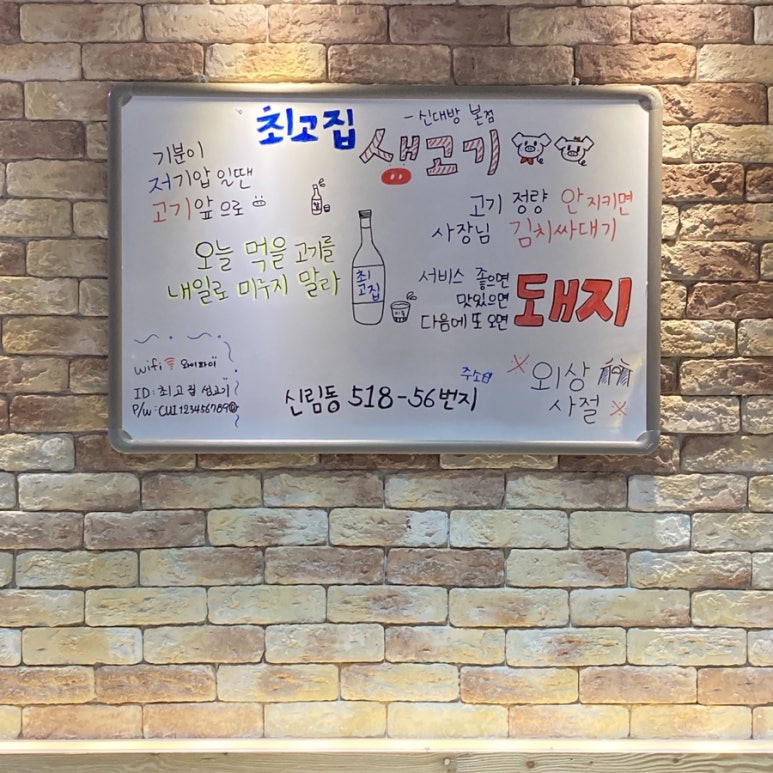 최고집
- 신대방 본점
생고기
기분이
저기압 일땐
고기앞으로
오늘 먹을 고기를
내일로 미루지 말라
최고집
고기 정량 안 지키면
사장님 김치싸대기
서비스 좋으면
맛있으면
다음에 또 오면
돼지
wifi 와이파이
ID: 최고집 생고기
P/w: CUI1234567890
주소
신림동 518-56번지
외상
사절